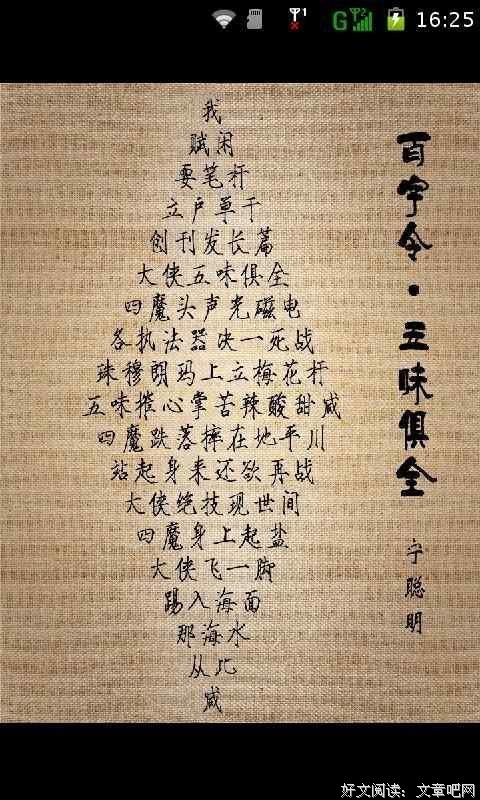 16:25
百字令·五味俱全
宁聪明
我
赋闲
耍笔杆
立户单干
创刊发长篇
大侠五味俱全
四魔头声光磁电
各执法器决一死战
珠穆朗玛上立梅花杆
五味摧心掌苦辣酸甜咸
四魔跌落摔在地平川
站起身来还欲再战
大侠绝技现世间
四魔身上起盐
大侠飞一脚
踢入海面
那海水
从此
咸
好文阅读：文章吧网